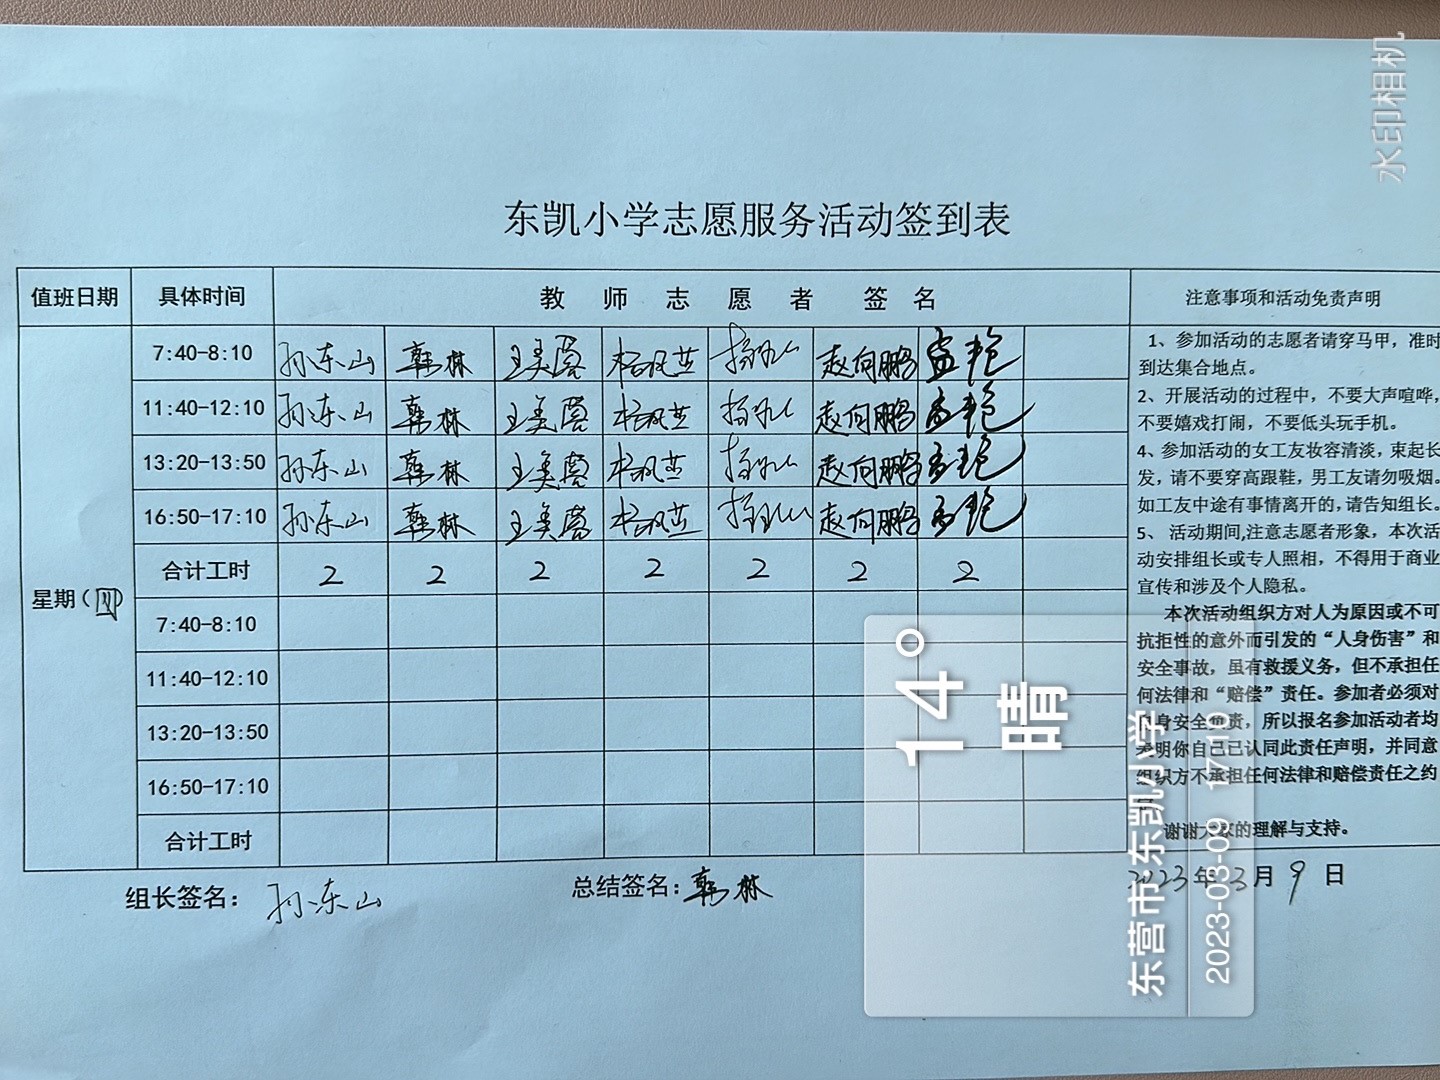 水印相机
东凯小学志愿服务活动签到表
值班日期 具体时间 教师志愿者签名 注意事项和活动免责声明
7:40-8:10 孙东山 韩林 王美蓉 赵向鹏 孟艳
11:40-12:10 孙东山 韩林 王美蓉 赵向鹏 孟艳
13:20-13:50 孙东山 韩林 王美蓉 赵向鹏 孟艳
16:50-17:10 孙东山 韩林 王美蓉 赵向鹏 孟艳
合计工时 2 2 2 2 2 2 2
星期(四)
7:40-8:10
11:40-12:10
13:20-13:50
16:50-17:10
合计工时
1、参加活动的志愿者请穿马甲，准时
到达集合地点。
2、开展活动的过程中，不要大声喧哗，
不要嬉戏打闹，不要低头玩手机。
4、参加活动的女工友妆容清淡，束起长
发，请不要穿高跟鞋，男工友请勿吸烟。
如工友中途有事情离开的，请告知组长。
5、 活动期间,注意志愿者形象，本次活
动安排组长或专人照相，不得用于商业
宣传和涉及个人隐私。
本次活动组织方对人为原因或不可
抗拒性的意外而引发的“人身伤害”和
安全事故，虽有救援义务，但不承担任
何法律和“赔偿”责任。参加者必须对
身安全负责，所以报名参加活动者均
表明你自己已认同此责任声明，并同意
组织方不承担任何法律和赔偿责任之约
谢谢大家的理解与支持。
组长签名：孙东山 总结签名：韩林 2023年3月9日
14°
晴
东营市·东凯小学
2023-03-09 17:10